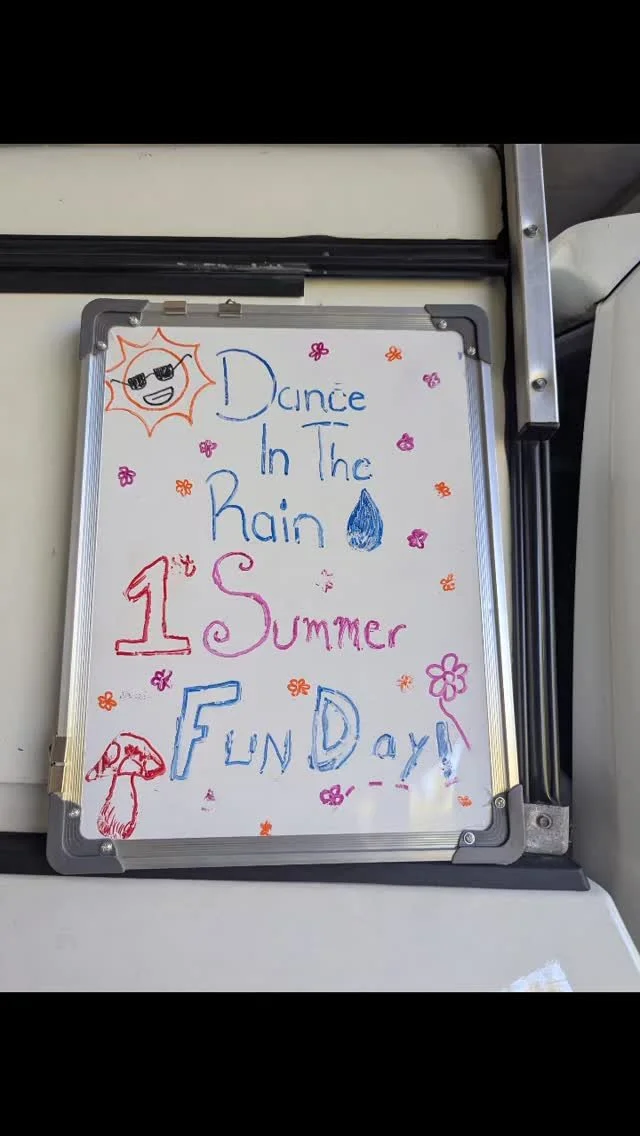 Dance
In The
Rain
1st Summer
Fun Day!